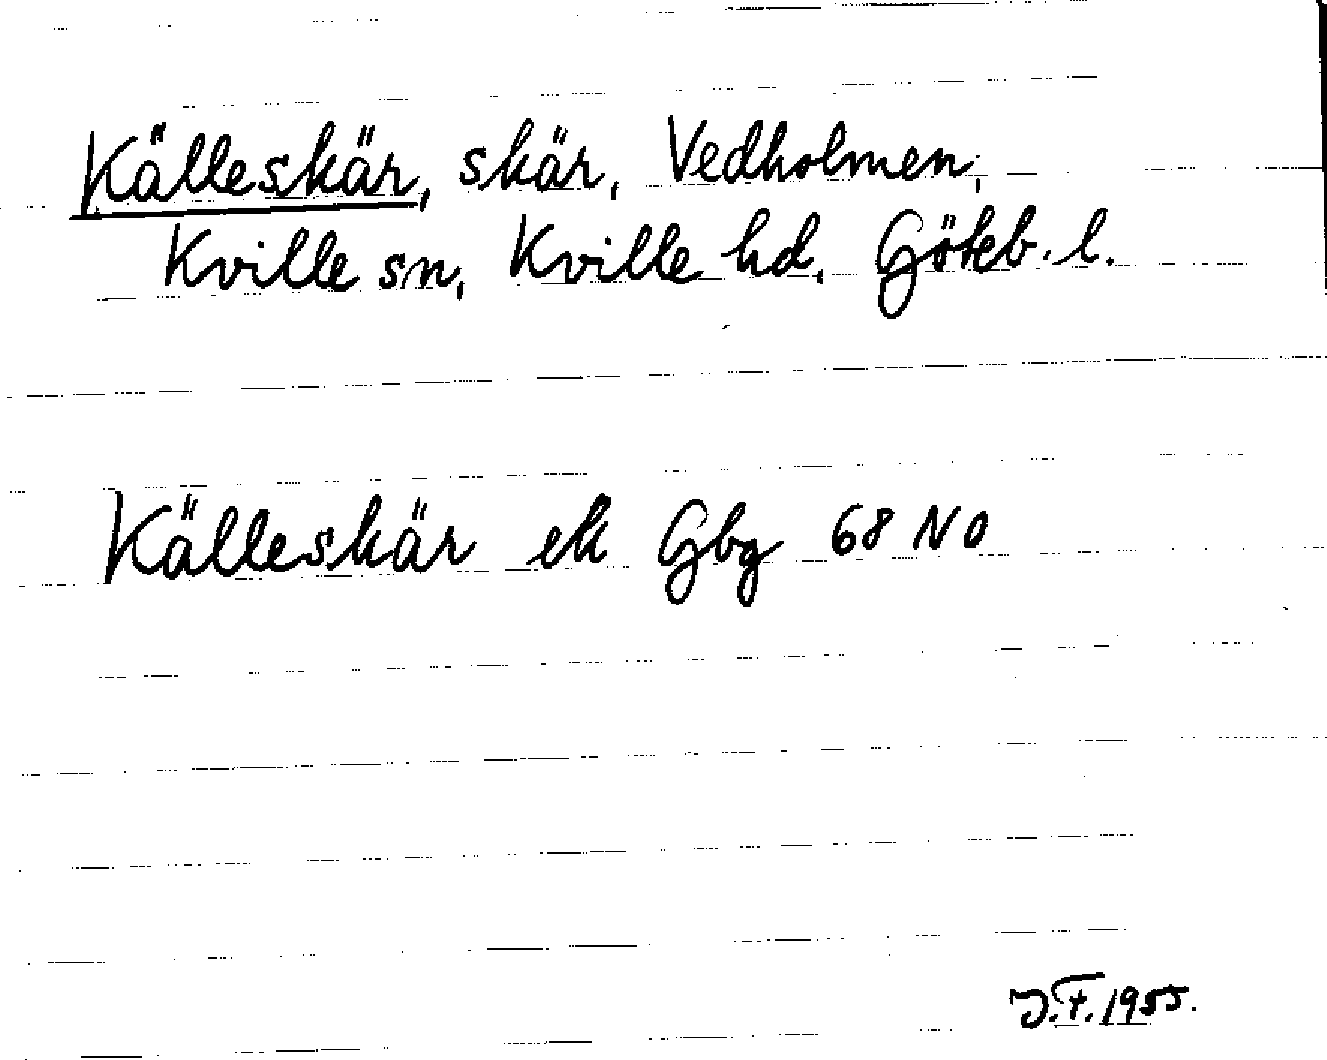 Källeskär, skär, Vedholmen,
Kville sn, Kville hd, Göteb. l.
Källeskär ek Gbg 68 NO
J.F. 1955.